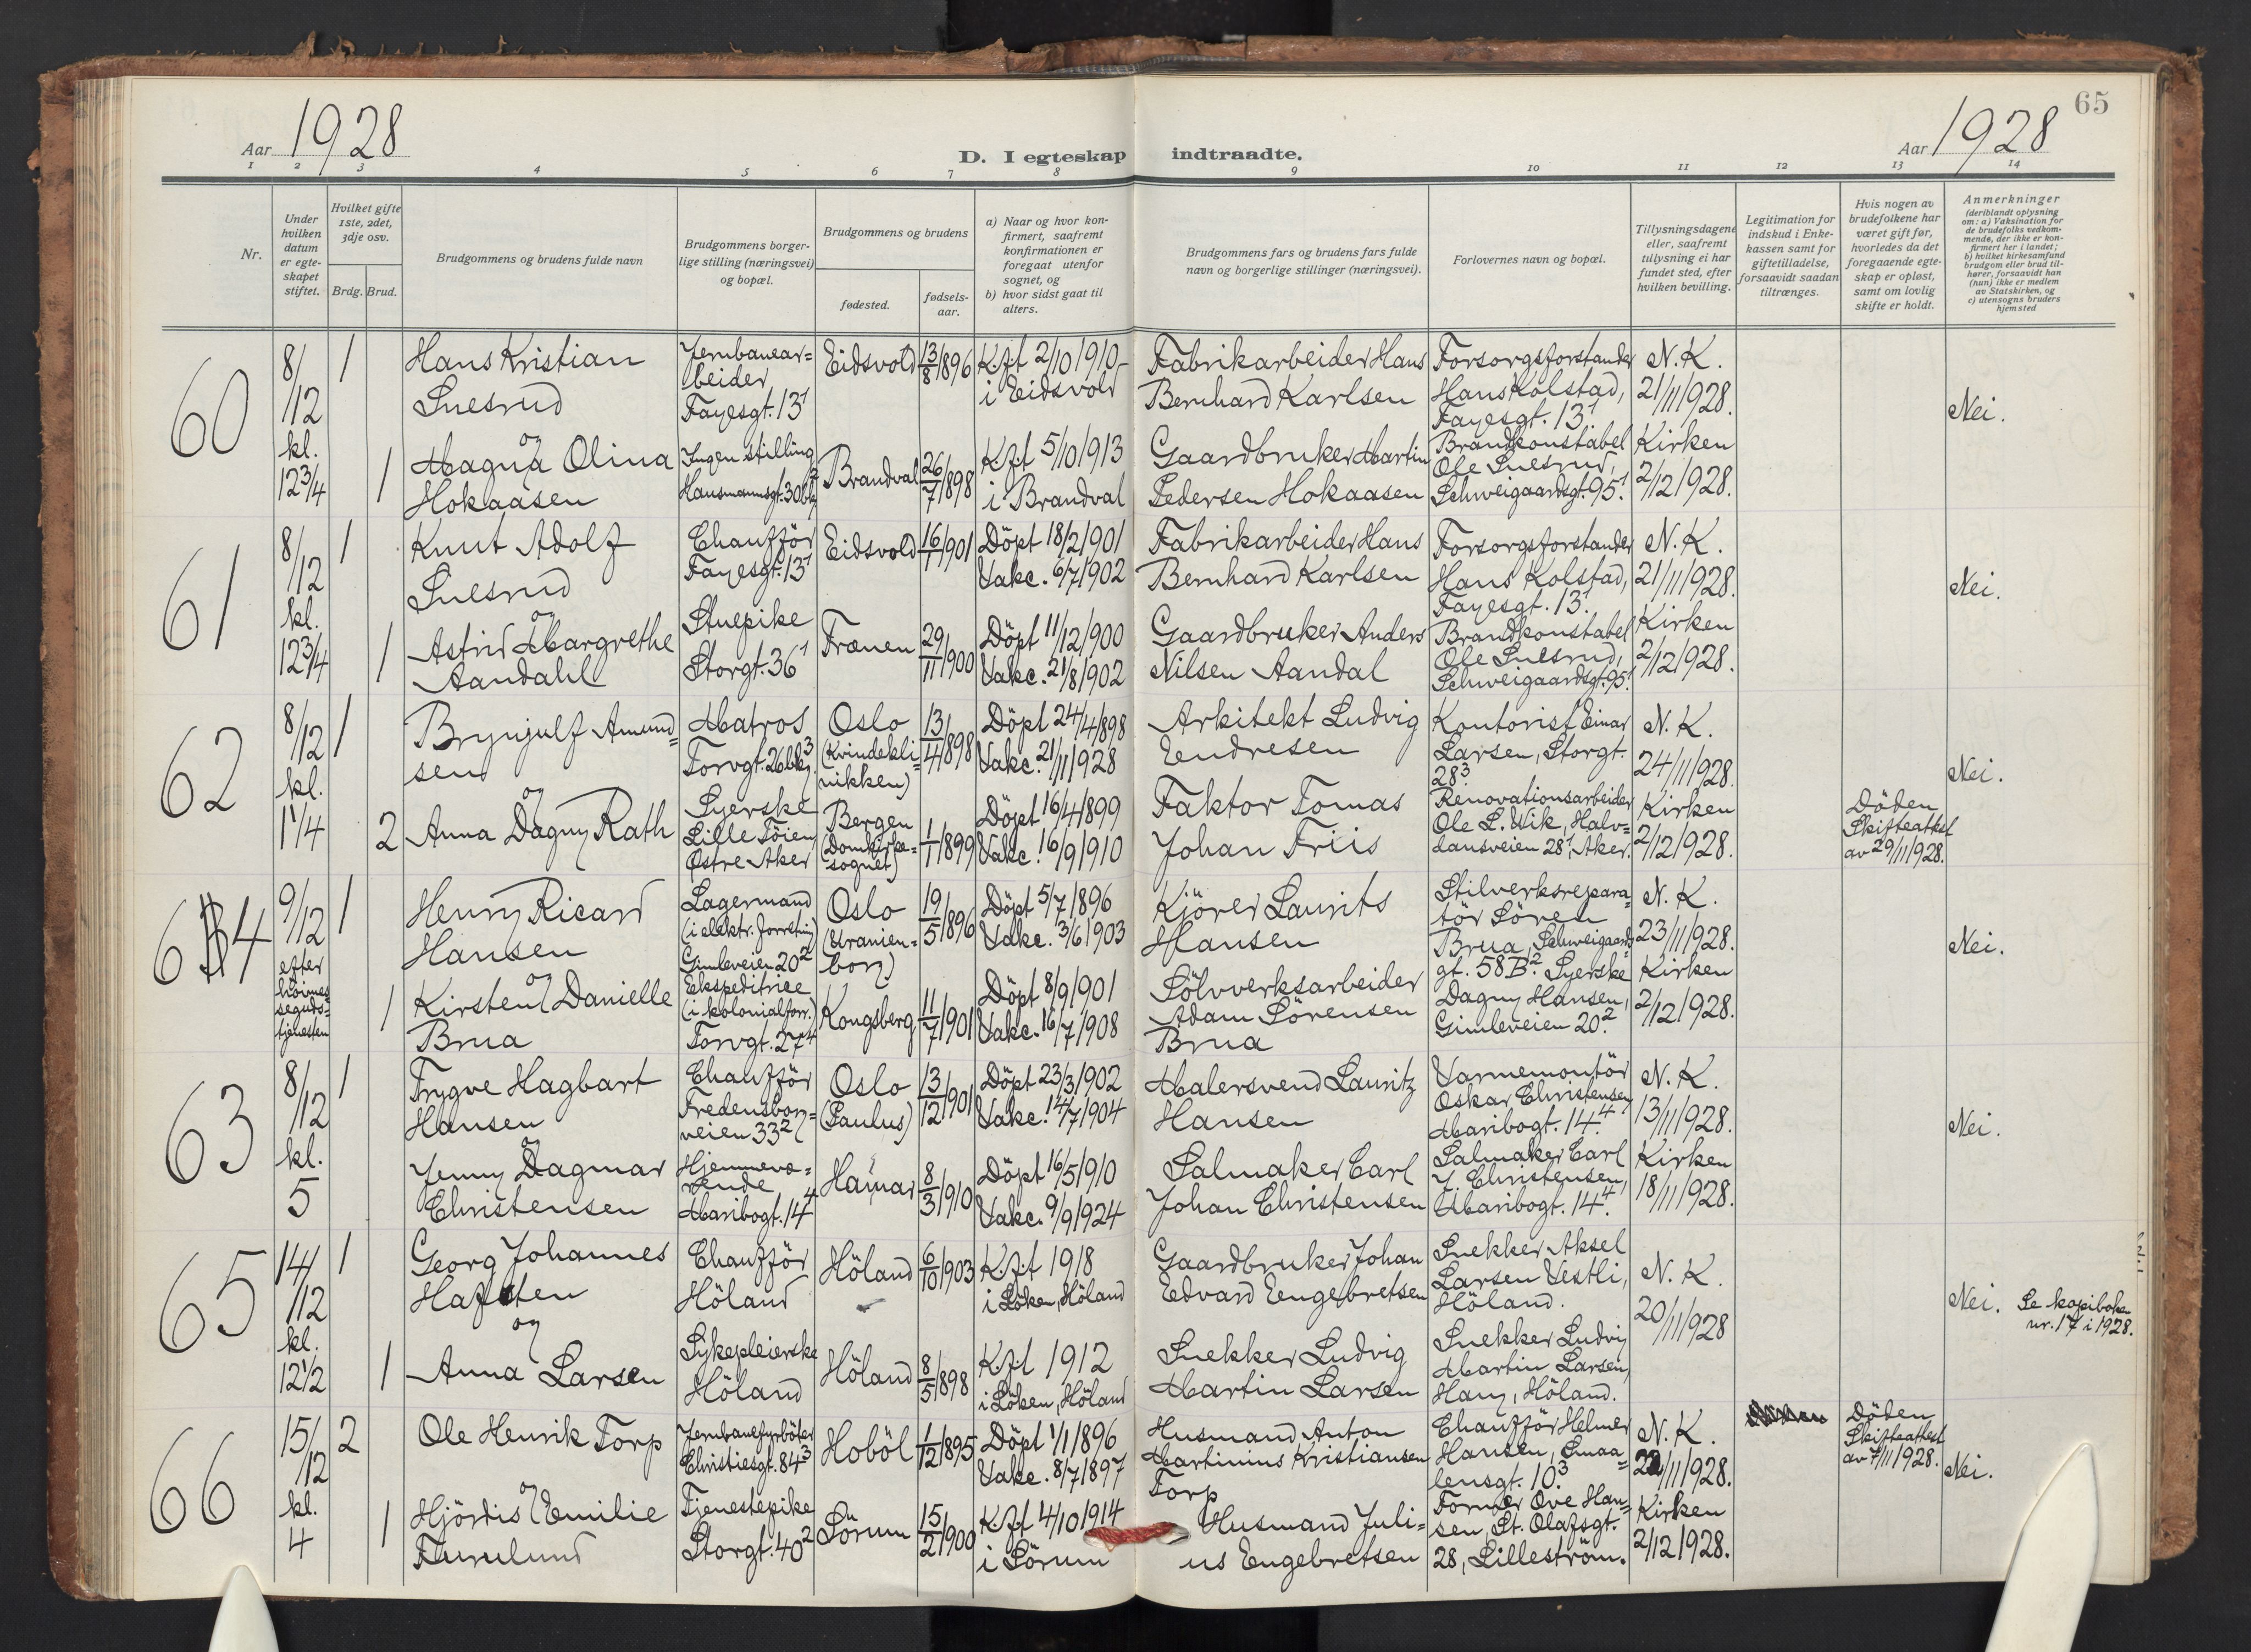 65
Aar 1928
D. I egteskap indtraadte.
Aar 1928
1 2 3 4 5 6 7 8 9 10 11 12 13 14
Nr.
Under
hvilken
datum
er egte-
skapet
stiftet.
Hvilket gifte
1ste, 2det,
3dje osv.
Brdg. Brud.
Brudgommens og brudens fulde navn
Brudgommens borger-
lige stilling (næringsvei)
og bopæl.
Brudgommens og brudens
fødested.
fødsels-
aar.
a) Naar og hvor kon-
firmert, saafremt
konfirmationen er
foregaat utenfor
sognet, og
b) hvor sidst gaat til
alters.
Brudgommens fars og brudens fars fulde
navn og borgerlige stillinger (næringsvei).
Forlovernes navn og bopæl.
Tillysningsdagene
eller, saafremt
tillysning ei har
fundet sted, efter
hvilken bevilling.
Legitimation for
indskud i Enke-
kassen samt for
giftetilladelse,
forsaavidt saadan
tiltrænges.
Hvis nogen av
brudefolkene har
været gift før,
hvorledes da det
foregaaende egte-
skap er opløst,
samt om lovlig
skifte er holdt.
Anmerkninger
(deriblandt oplysning
om: a) Vaksination for
de brudefolks vedkom-
mende, der ikke er kon-
firmert her i landet;
b) hvilket kirkesamfund
brudgom eller brud til-
hører, forsaavidt han
(hun) ikke er medlem
av Statskirken, og
c) utensogns bruders
hjemsted
60
8/
/12
kl.
12 3/4
1
Hans Kristian
Snesrud
og
Jernbanear=
beider
Fayesgt. 13¹
Eidsvold
13/8 1896
K.f.t 2/10 1910
i Eidsvold
Fabrikarbeider Hans
Bernhard Karlsen
Forsorgsforstander
Hans Kolstad,
Fayesgt. 13¹
N. K.
21/11 1928.
Nei.
1
Magna Olina
Hokaasen
Ingen stilling
Hausmannsgt. 30 bkg²
Brandval
26/7 1898
K.f.t 5/10 1913
i Brandval
Gaardbruker Martin
Pedersen Hokaasen
Brandkonstabel
Ole Snesrud,
Schweigaardsgt. 95¹.
Kirken
2/12 1928.
61
8/
/12
kl.
12 3/4
1
Knut Adolf
Snesrud
og
Chaufför
Fayesgt. 13¹
Eidsvold
16/1 1901
Döpt 18/2 1901
Vakc. 6/7 1902
Fabrikarbeider Hans
Bernhard Karlsen
Forsorgsforstander
Hans Kolstad,
Fayesgt. 13¹.
N. K.
21/11 1928.
Nei.
1
Astrid Margrethe
Aandahl
Stuepike
Storgt. 36¹
Frænen
29/11 1900
Döpt 11/12 1900
Vakc. 21/8 1902
Gaardbruker Anders
Nilsen Aandal
Brandkonstabel
Ole Snesrud,
Schweigaardsgt. 95¹.
Kirken
2/12 1928.
62
8/
/12
kl.
1 1/4
1
Brynjulf Amund=
sen
og
Matros
Torvgt. 26 bkg³.
Oslo
(Kvindekli=
nikken)
13/4 1898
Döpt 24/4 1898
Vakc. 21/11 1928
Arkitekt Ludvig
Endresen
Kontorist Einar
Larsen, Storgt.
28³.
N. K.
24/11 1928.
Nei.
2
Anna Dagny Rath
Syerske
Lille Töien,
Østre Aker
Bergen
(Domkirke=
sognet)
1/1 1899
Döpt 16/4 1899
Vakc. 16/9 1910
Faktor Tomas
Johan Friis
Renovationsarbeider
Ole L. Wik, Halv=
dansveien 28¹, Aker.
Kirken
2/12 1928.
Döden
Skifteattest
av 29/11 1928.
64
9/
/12
efter
höimes
seguds=
tjenesten
1
Henry Ricard
Hansen
og
Lagermand
(i elektr. forretning)
Gimleveien 20²
Oslo
(Uranien=
borg)
19/5 1896
Döpt 5/7 1896
Vakc. 3/6 1903
Kjörer Laurits
Hansen
Stilverksrepara
tör Sören
Brua, Schweigaards
gt. 58 B². Syerske
Dagny Hansen,
Gimleveien 20².
N. K.
23/11 1928.
Kirken
2/12 1928.
Nei.
1
Kirsten Danielle
Brua
Ekspeditrice
(i kolonialforr.)
Torvgt. 27⁴
Kongsberg
11/7 1901
Döpt 8/9 1901
Vakc. 16/7 1908
Sölvverksarbeider
Adam Sörensen
Brua
63
8/
/12
kl.
5
1
Trygve Hagbart
Hansen
og
Chaufför
Fredensborg=
veien 33²
Oslo
(Paulus)
13/12 1901
Döpt 23/3 1902
Vakc. 14/7 1904
Malersvend Lauritz
Hansen
Varmemontör
Oskar Christensen
Maribogt. 14⁴.
N. K.
13/11 1928.
Nei.
Jenny Dagmar
Christensen
Hjemmevæ=
rende
Maribogt. 14⁴
Hamar
8/3 1910
Döpt 16/5 1910
Vakc. 9/9 1924
Salmaker Carl
Johan Christensen
Salmaker Carl
J. Christensen,
Maribogt. 14⁴.
Kirken
18/11 1928.
65
14/
/12
kl.
12 1/2
1
Georg Johannes
Hafsten
og
Chaufför
Höland
Höland
6/10 1903
K.f.t 1918
i Löken, Höland
Gaardbruker Johan
Edvard Engebretsen
Snekker Aksel
Larsen Vestli,
Höland.
N. K.
20/11 1928
Nei. Se kopiboken
nr. 17 i 1928.
1
Anna Larsen
Sykepleierske
Höland
Höland
8/5 1898
K.f.t 1912
i Löken, Höland
Snekker Ludvig
Martin Larsen
Snekker Ludvig
Martin Larsen,
Höland.
66
15/
/12
kl.
4
2
Ole Henrik Torp
og
Jernbanefyrböter
Christiesgt. 84³
Hoböl
1/12 1895
Döpt 1/1 1896
Vakc. 8/7 1897
Husmand Anton
Martinius Kristiansen
Torp
Chaufför Helmer
Hansen, Smaa=
lensgt. 10³
N. K.
22/11 1928.
Döden
Skifteattest
av 7/11 1928.
Nei.
1
Hjördis Emilie
Furulund
Tjenestepike
Storgt. 40²
Sörum
15/2 1900
K.f.t 4/10 1914
i Sörum
Husmand Juli=
us Engebretsen
Former Ove Han=
sen, St. Olafsgt.
28, Lilleström.
Kirken
2/12 1928.